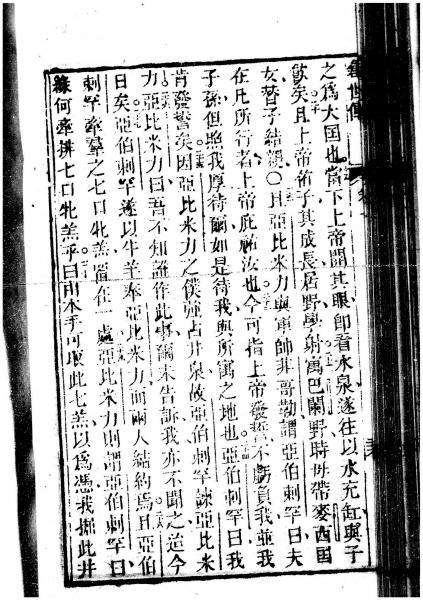 之為大国也當下上帝開其眼即看水泉遂往以水充缸與子
飲矣且上帝祐子其成長居野學射寓巴闌野時母帶麥西国
女替子結親〇且亞比米力與軍帥非哥勒謂亞伯剌罕曰夫
在凡所行者上帝庇祐汝也今可指上帝發誓不虧負我並我
子孫但照我厚待爾如是待我與所寓之地也亞伯剌罕曰我
肯發誓矣因亞比米力之僕強占井泉故亞伯剌罕諫亞比米
力亞比米力曰吾不知誰作此事爾未告訴我亦不聞之迨今
日矣亞伯剌罕遂以牛羊奉亞比米力而兩人結約焉且亞伯
剌罕牽羣之七口牝羔置在一處亞比米力則謂亞伯剌罕曰
緣何牽排七口牝羔乎曰由本手可取此七羔以為憑我掘此井